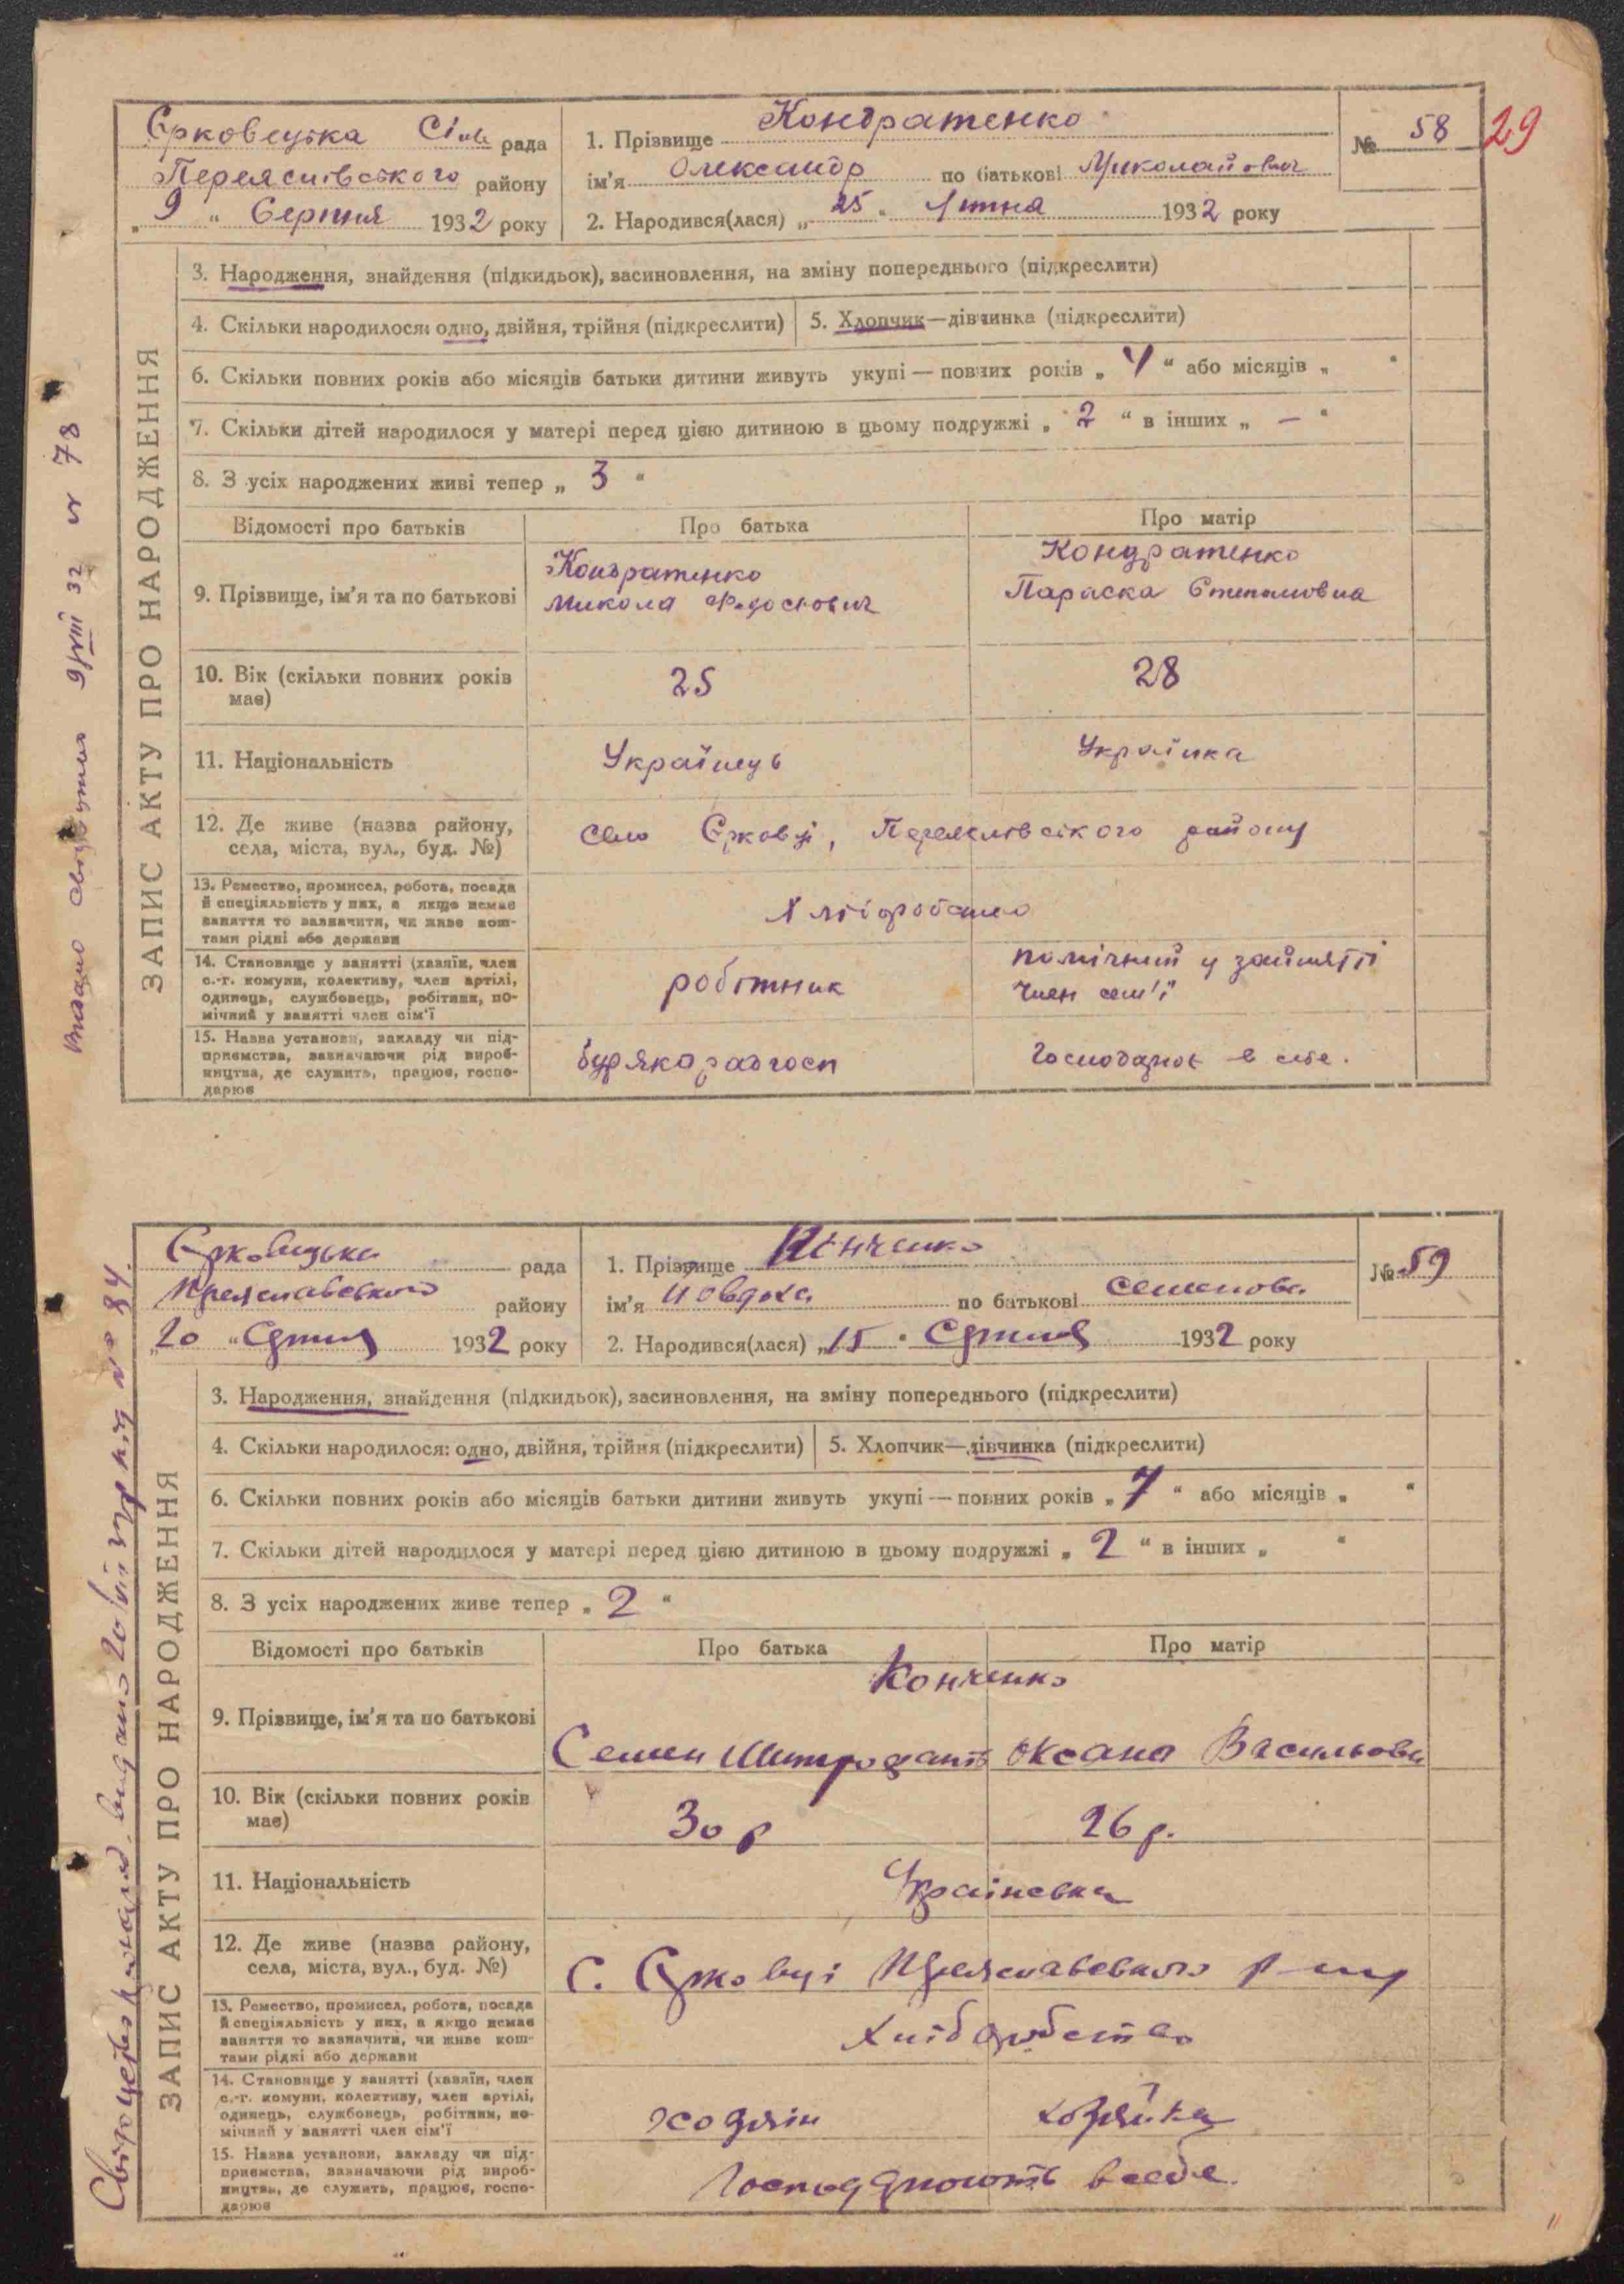 Єрковецька Сіль рада
Переяслівського району
„ 9 “ Серпня 1932 року
1. Прізвище Кондратенко
ім’я Олександр по батькові Миколайович
2. Народився(лася) „ 25 “ Липня 1932 року
№ 58
29
ЗАПИС АКТУ ПРО НАРОДЖЕННЯ
3. Народження, знайдення (підкидьок), засиновлення, на зміну попереднього (підкреслити)
4. Скільки народилося: одно, двійня, трійня (підкреслити)
5. Хлопчик—дівчинка (підкреслити)
6. Скільки повних років або місяців батьки дитини живуть укупі — повних років „ 4 “ або місяців „ “
7. Скільки дітей народилося у матері перед цією дитиною в цьому подружжі „ 2 “ в інших „ — “
8. З усіх народжених живі тепер „ 3 “
Відомості про батьків
Про батька
Про матір
9. Прізвище, ім’я та по батькові
Кондратенко
Микола Федосович
Кондратенко
Параска Степановна
10. Вік (скільки повних років
має)
25
28
11. Національність
Українець
Українка
12. Де живе (назва району,
села, міста, вул., буд. №)
село Єрковці, Переяслівського району
13. Ремество, промисел, робота, посада
й спеціяльність у них, а якщо немає
заняття то зазначити, чи живе кош-
тами рідні або держави
Хліборобство
14. Становище у занятті (хазяїн, член
с.-г. комуни, колективу, член артілі,
одинець, службовець, робітник, по-
мічний у занятті член сім’ї
робітник
помічний у зайнятті
член сем'ї
15. Назва установи, закладу чи під-
приємства, зазначаючи рід вироб-
ництва, де служить, працює, госпо-
дарює
бурякорадгосп
Господарює в себе.
Видано 9/VIII 32 № 78
Єрковецька рада
Переяславського району
„ 20 “ Серпня 1932 року
1. Прізвище Конченко
ім’я Йовдоха по батькові Семенова
2. Народився(лася) „ 15 “ Серпня 1932 року
№ 59
ЗАПИС АКТУ ПРО НАРОДЖЕННЯ
3. Народження, знайдення (підкидьок), засиновлення, на зміну попереднього (підкреслити)
4. Скільки народилося: одно, двійня, трійня (підкреслити)
5. Хлопчик—дівчинка (підкреслити)
6. Скільки повних років або місяців батьки дитини живуть укупі — повних років „ 7 “ або місяців „ “
7. Скільки дітей народилося у матері перед цією дитиною в цьому подружжі „ 2 “ в інших „ “
8. З усіх народжених живе тепер „ 2 “
Відомості про батьків
Про батька
Про матір
Конченко
9. Прізвище, ім’я та по батькові
Семен
Оксана Васильовн
10. Вік (скільки повних років
має)
30 р
26 р.
11. Національність
12. Де живе (назва району,
села, міста, вул., буд. №)
с. Єрковці Переяславського р-ну
13. Ремество, промисел, робота, посада
й спеціяльність у них, а якщо немає
заняття то зазначити, чи живе кош-
тами рідні або держави
Хліборобство
14. Становище у занятті (хазяїн, член
с.-г. комуни, колективу, член артілі,
одинець, службовець, робітник, по-
мічний у занятті член сім’ї
хозяїн
хозяйка
15. Назва установи, закладу чи під-
приємства, зазначаючи рід вироб-
ництва, де служить, працює, госпо-
дарює
Господарюють в себе.
видано № 84.